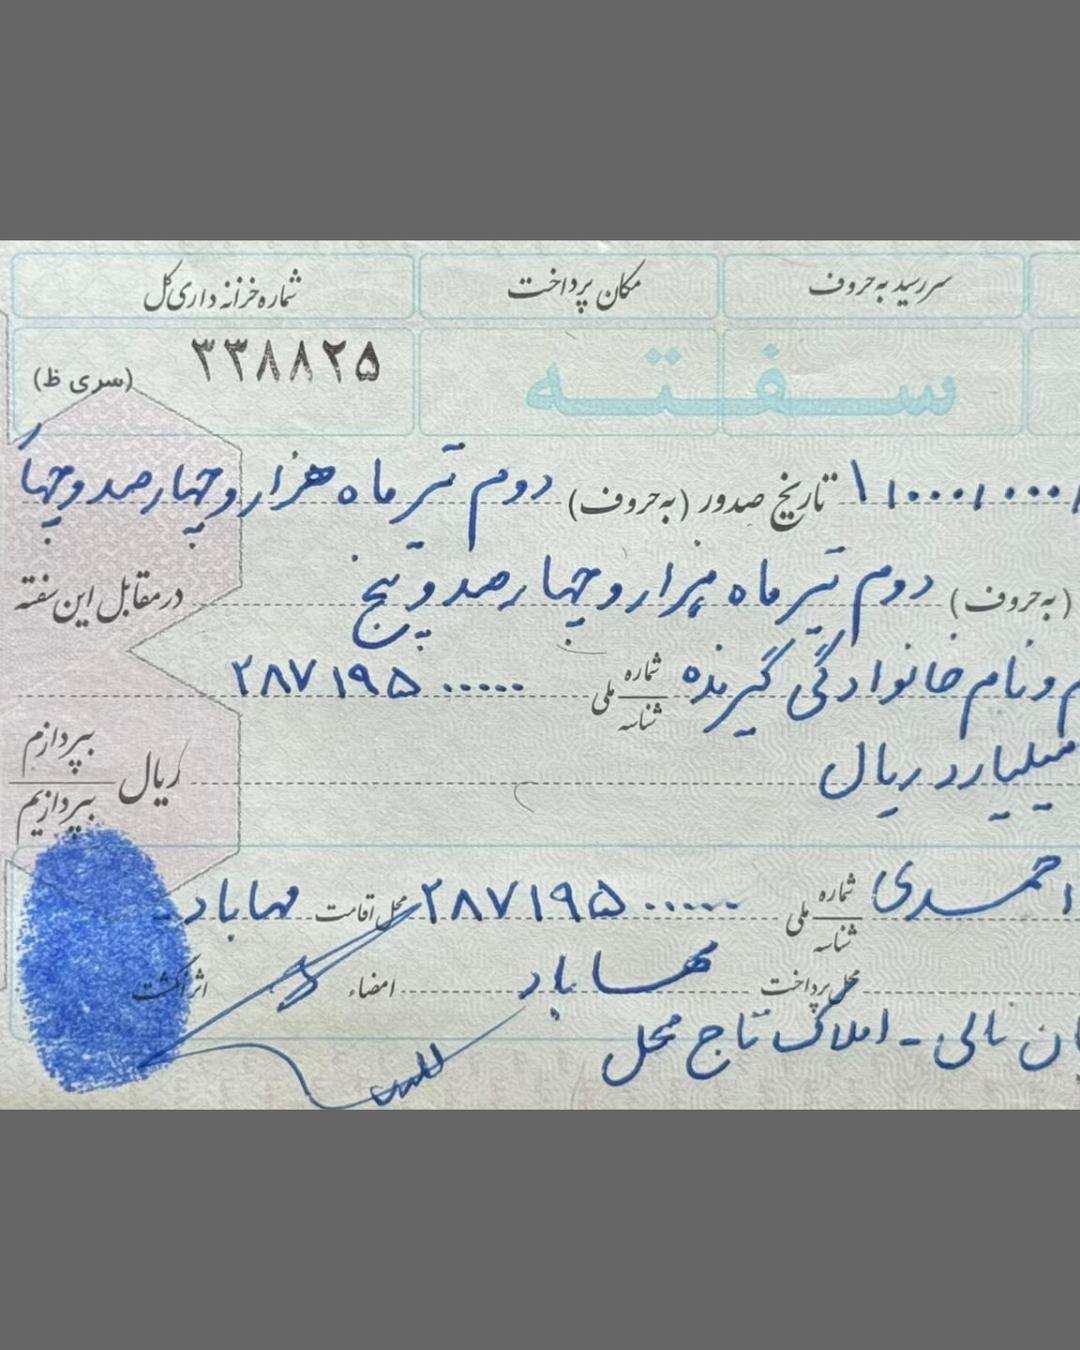 سررسید به‌حروف مکان پرداخت شماره خزانه داری کل
سفته ۳۳۸۸۲۵ (سری ظ)
تاریخ صدور (به‌حروف) دوم تیر ماه هزار و چهارصد و چها
(به‌حروف) دوم تیر ماه هزار و چهارصد و پنج درمقابل این سفته
و نام خانوادگی گیرنده شماره ملی شناسه ۲۸۷۱۹۵.....
میلیارد ریال ریال بپردازم بپردازیم
احمدی شماره ملی شناسه ۲۸۷۱۹۵...... محل اقامت مهاباد
محل پرداخت مهاباد امضاء اثر انگشت
املاک تاج محل